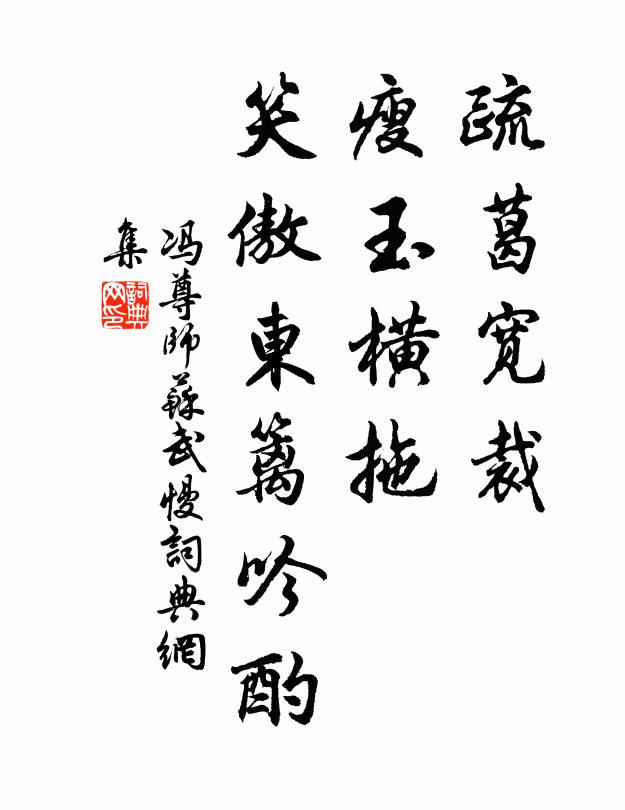 疏葛寬裁
瘦玉橫拖
笑傲東籬吟酌
馮尊師蘇武慢詞典網
集
詞典
网印